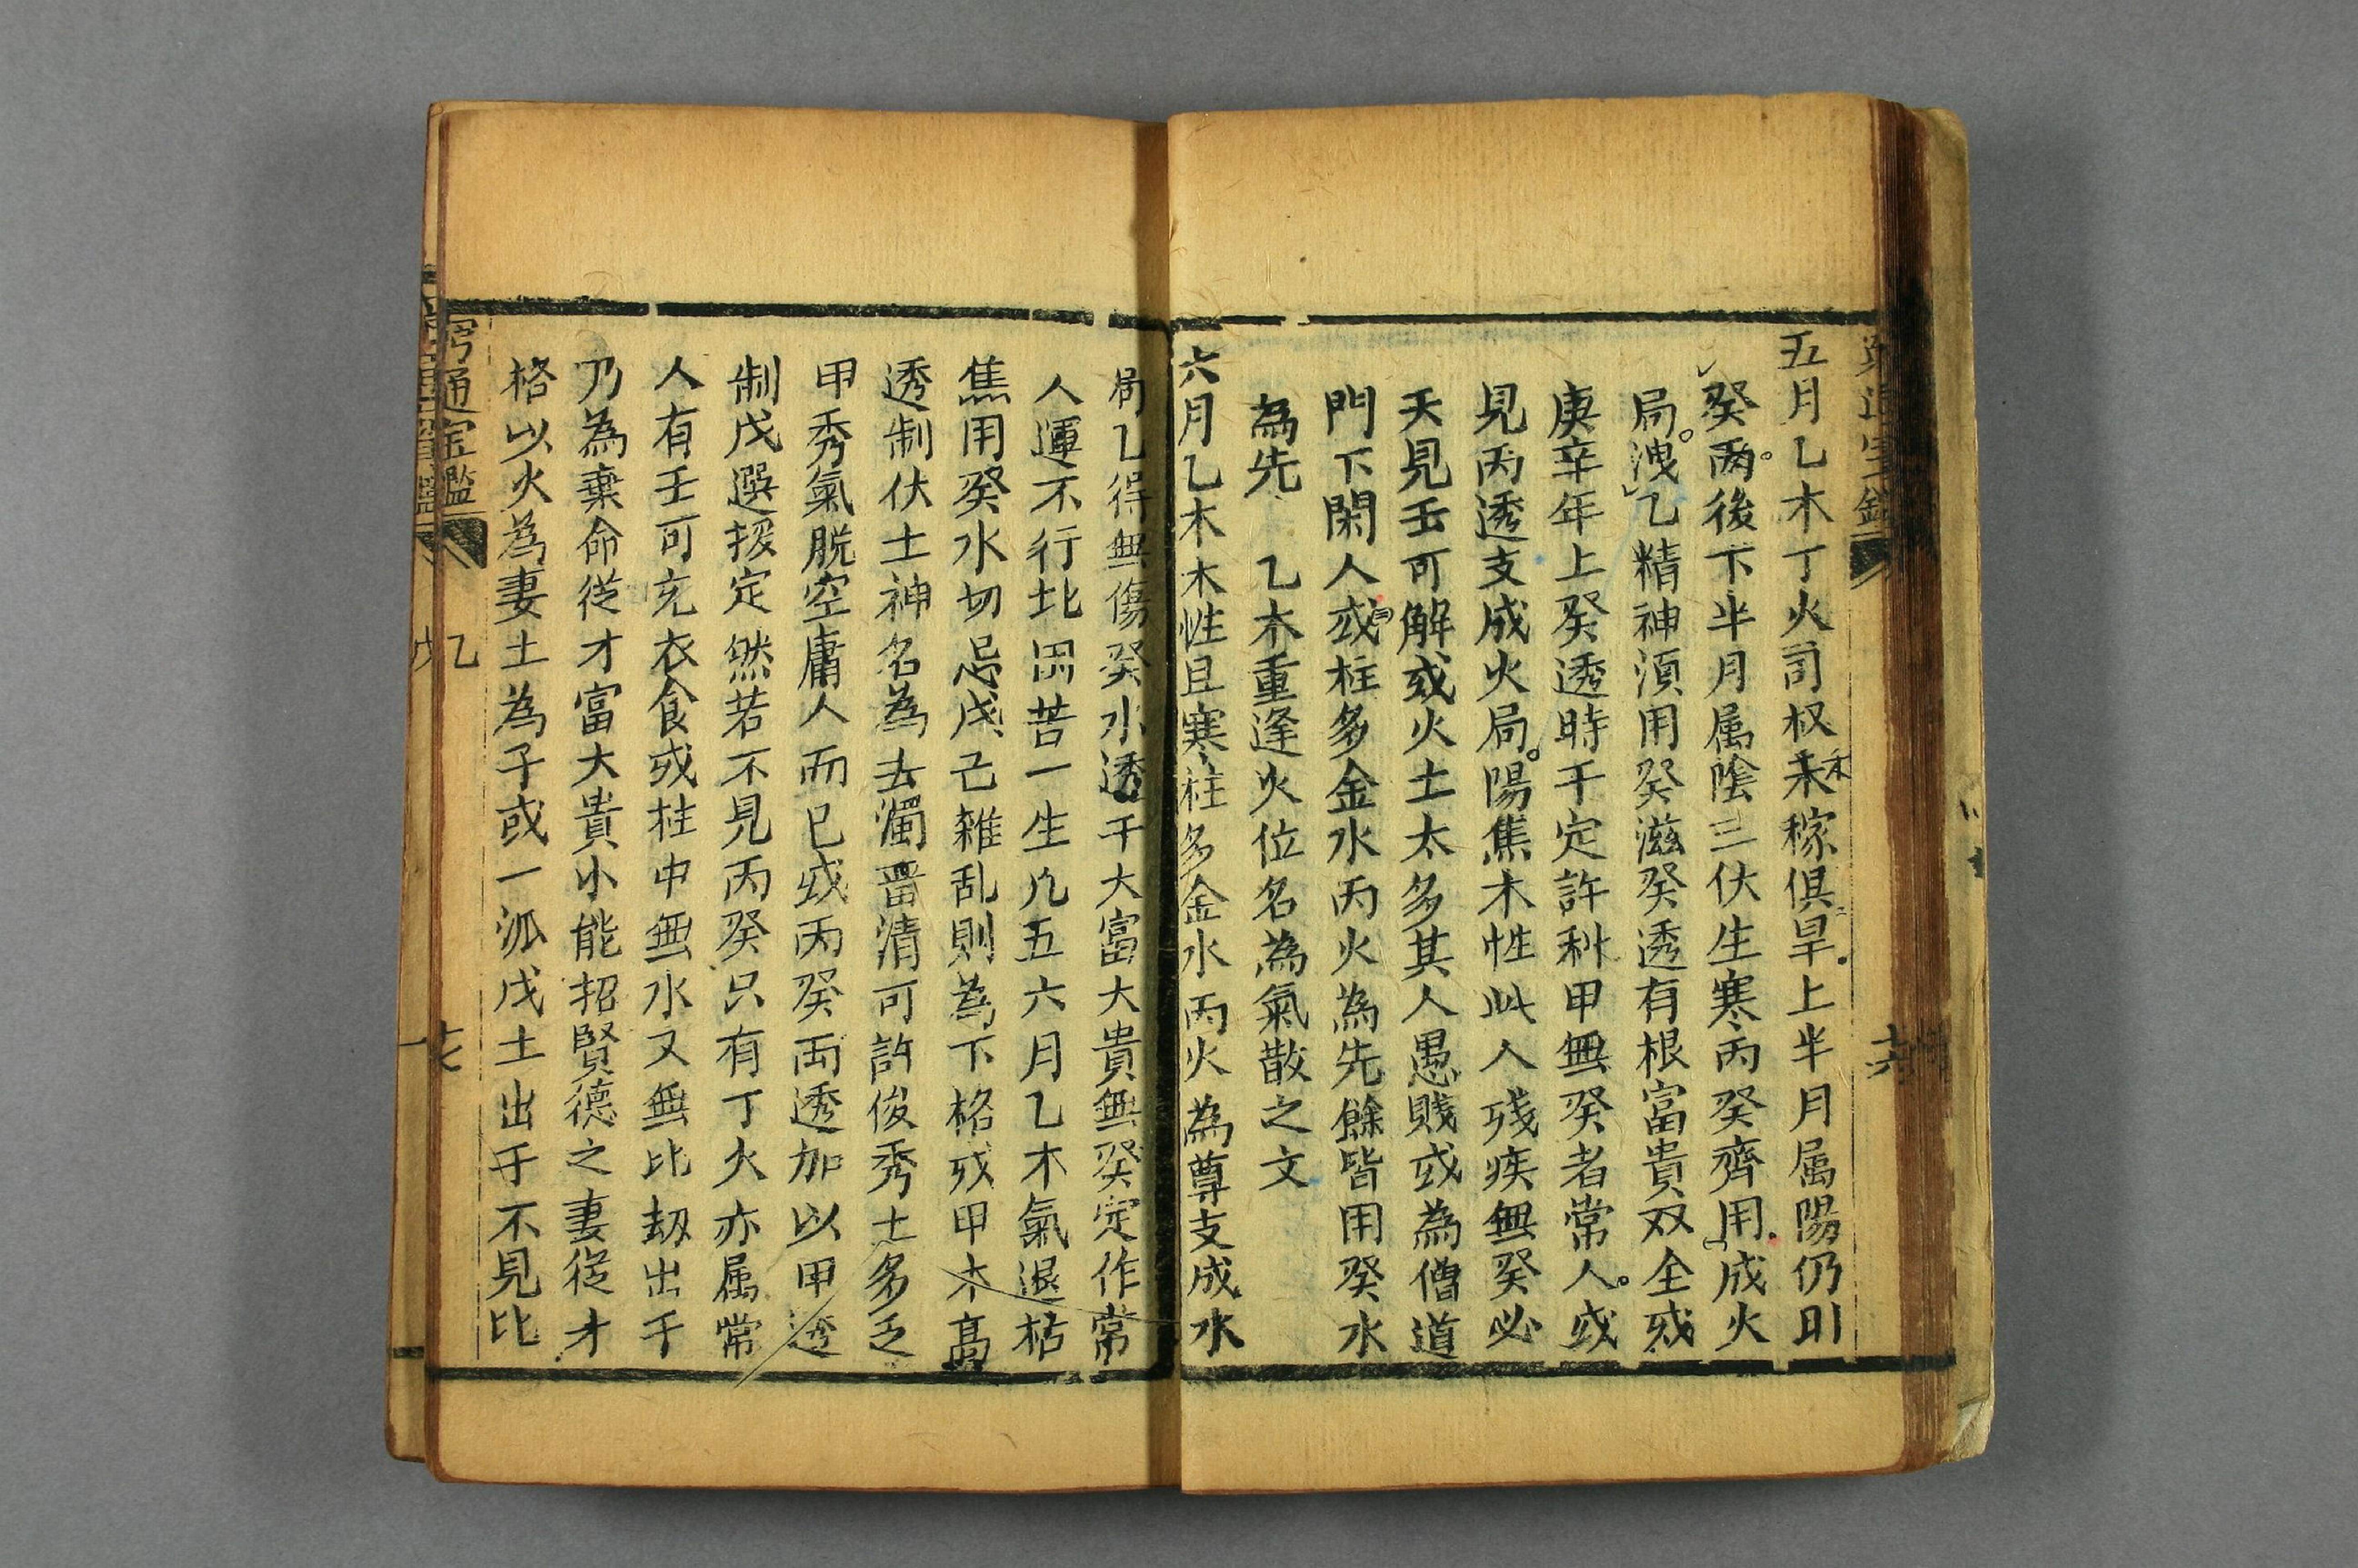 五月乙木丁火司权禾稼俱旱上半月属陽仍用
癸两後下半月属陰三伏生寒丙癸齊用成火
局洩乙精神湏用癸滋癸透有根富貴双全或
庚辛年上癸透時干定許秋甲無癸者常人或
見丙透支成火局陽焦木性此人残疾無癸必
夭見壬可解或火土太多其人愚賤或為僧道
門下閑人或柱多金水丙火為先餘皆用癸水
為先 乙木重逢火位名為氣散之文
六月乙木木性且寒柱多金水丙火為尊支成水
局乙得無傷癸水透干大富大貴無癸定作常
人運不行北困苦一生凢五六月乙木氣退枯
焦用癸水切忌戊己雜乱則為下格或甲木高
透制伏土神名為去濁畱清可許俊秀土多乏
甲秀氣脱空庸人而已或丙癸両透加以甲透
制戊選拔定然若不見丙癸只有丁火亦属常
人有壬可充衣食或柱中無水又無比刼出干
乃為棄命從才富大貴小能招賢德之妻從才
格以火為妻土為子或一泒戊土出干不見比
窮通宝鑑
乙
十七
十六